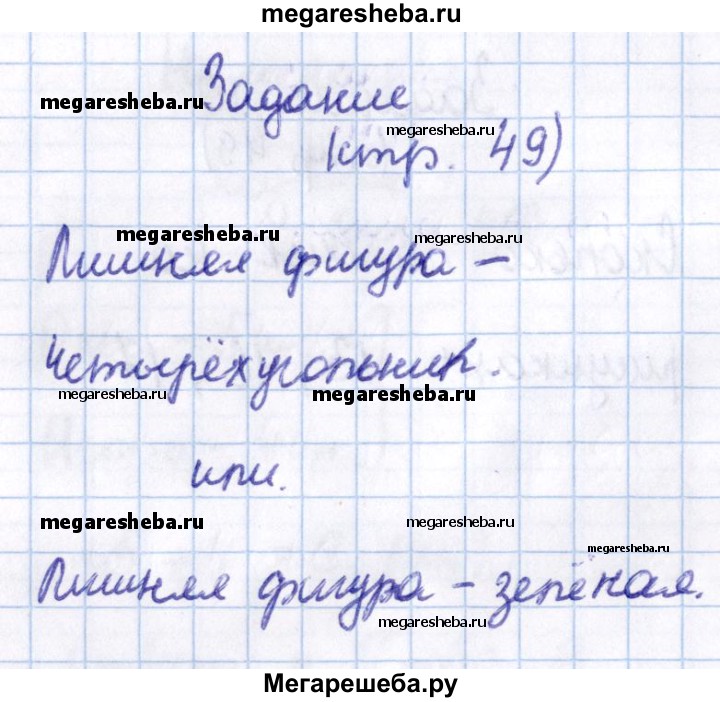 megaresheba.ru
Задание
megaresheba.ru
megaresheba.ru
(стр. 49)
megaresheba.ru
megaresheba.ru
Лишняя фигура –
четырёхугольник.
megaresheba.ru
megaresheba.ru
или.
megaresheba.ru
megaresheba.ru
megaresheba.ru
Лишняя фигура – зелёная.
megaresheba.ru
Мегарешеба.ру